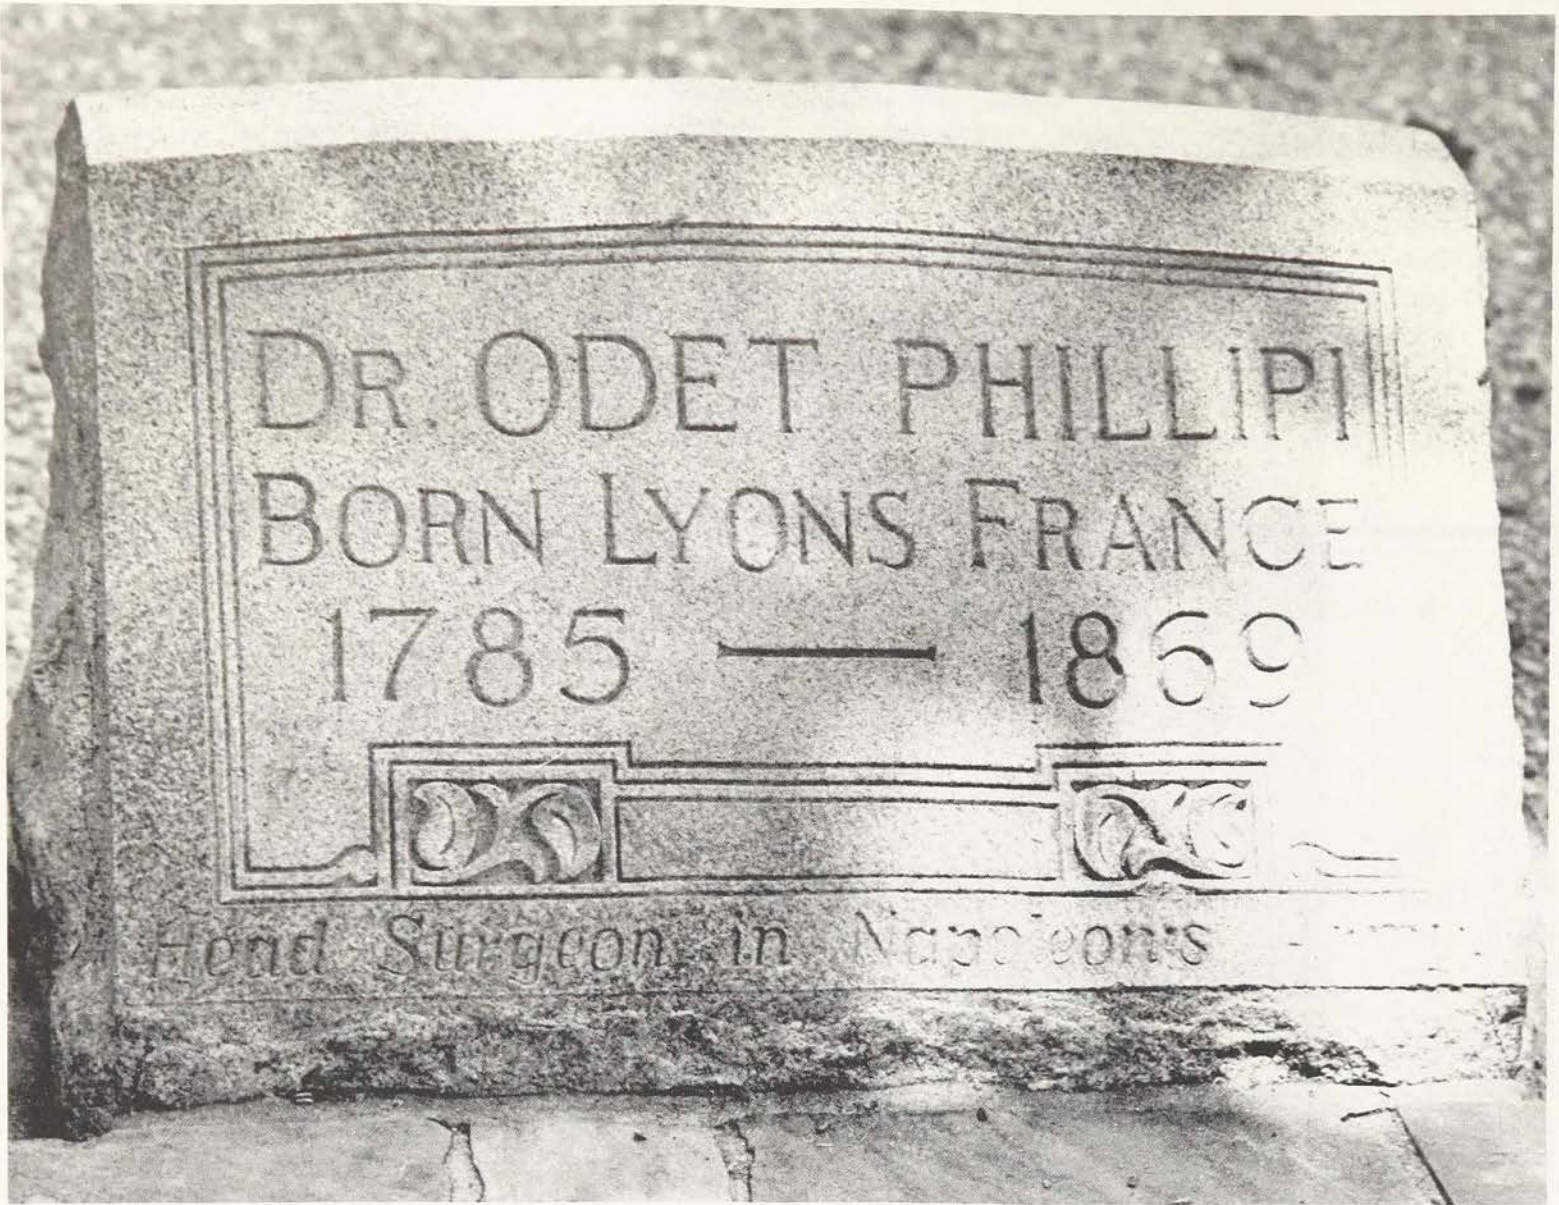 DR. ODET PHILLIPI
BORN LYONS FRANCE
1785 — 1869
Head Surgeon in Napoleon's